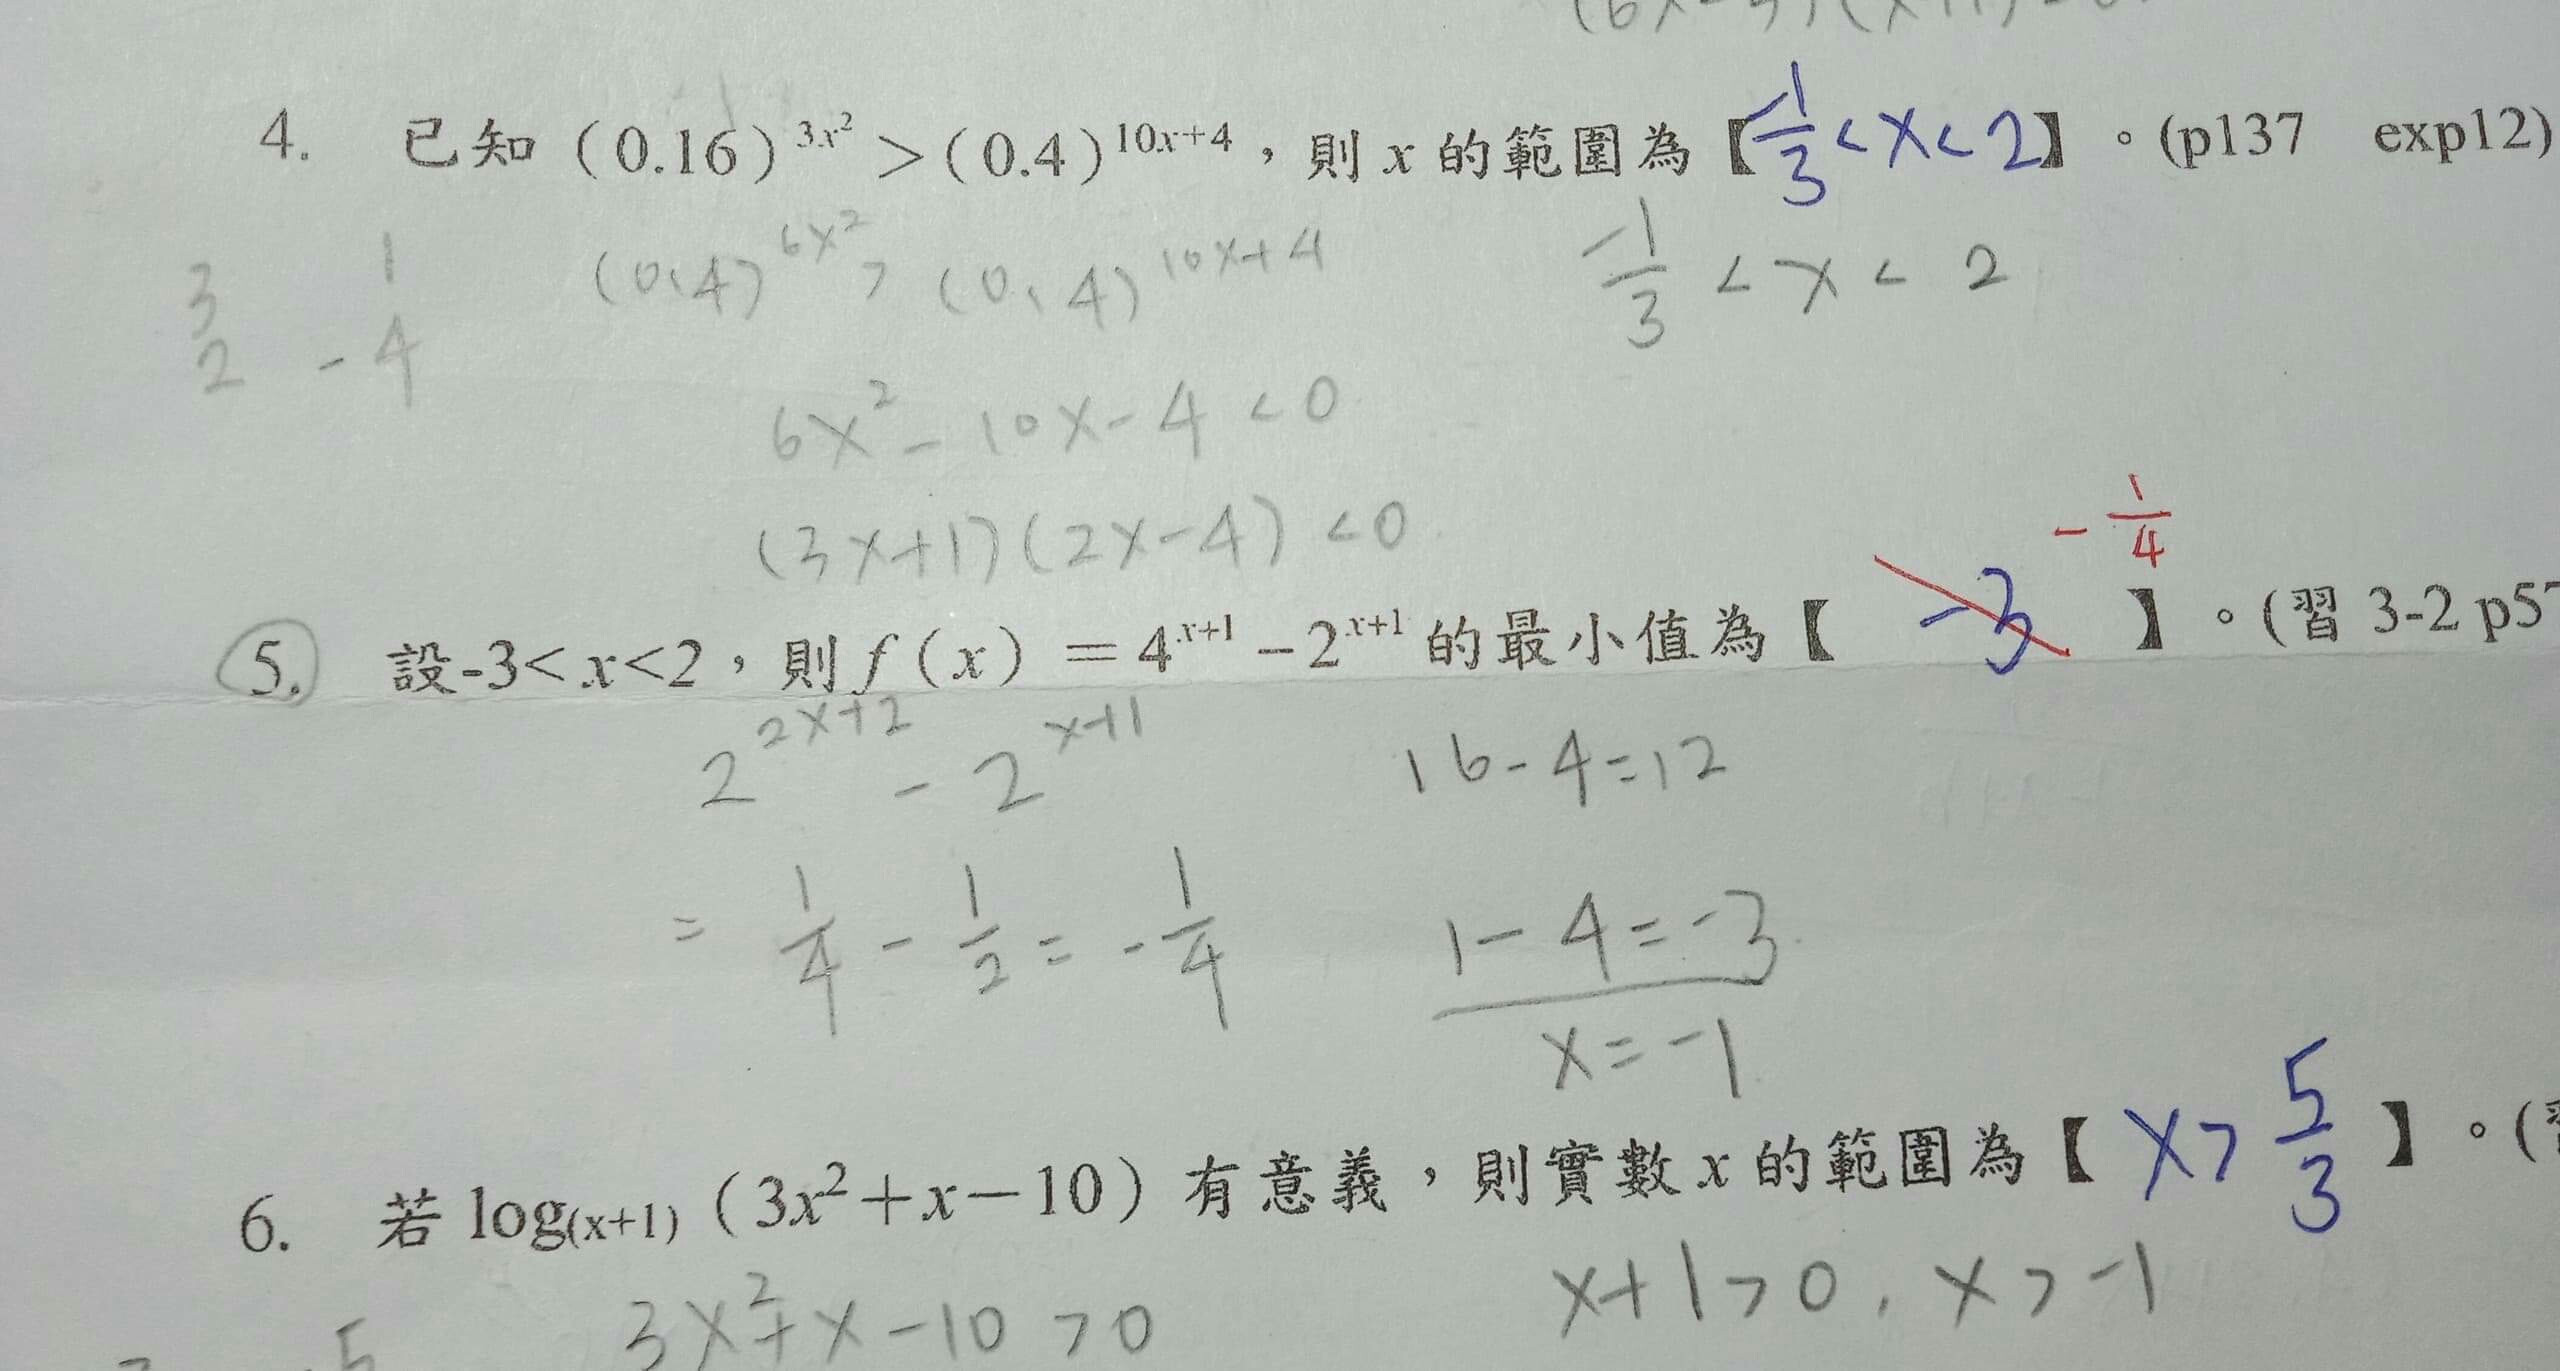 4. 已知（0.16）^{3x²}＞（0.4）^{10x+4}，則 x 的範圍為【-1/3 < x < 2】。(p137 exp12)
3 1
2 -4
(0.4)^{6x²} > (0.4)^{10x+4}
-1/3 < x < 2
6x² - 10x - 4 < 0
(3x+1)(2x-4) < 0
-1/4
5. 設-3< x<2，則 f（x）＝4^{x+1}－2^{x+1} 的最小值為【 -3 】。(習 3-2 p57
2^{2x+2} - 2^{x+1}
16-4=12
= 1/4 - 1/2 = -1/4
1-4=-3
x=-1
6. 若 log(x+1)（3x²＋x－10）有意義，則實數 x 的範圍為【 x> 5/3 】。(習
3x²+x-10 >0
x+1>0, x>-1